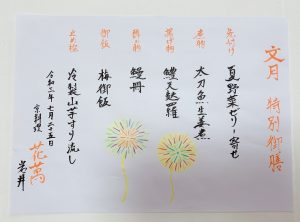 文月 特別御膳
先付け
夏野菜ゼリー寄せ
煮物
太刀魚生姜煮
揚げ物
鱧天麩羅
酢の物
鰻冊
御飯
梅御飯
止め椀
冷製山芋すり流し
令和三年七月二十五日
京料理 花萬
岩井